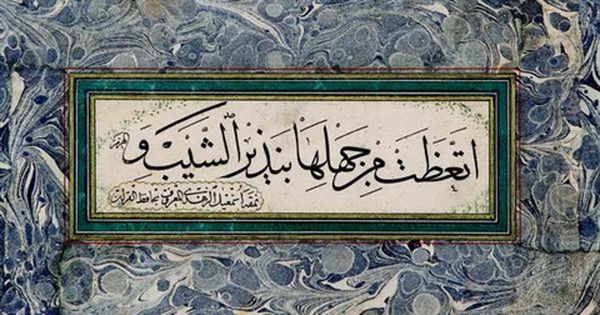 اتَّعَظَتْ مِنْ جَهْلِهَا بِنَذِيرِ ٱلشَّيْبِ وَالهرم
نمقه اسمعيل الزهدي المعروف بحافظ القرآن